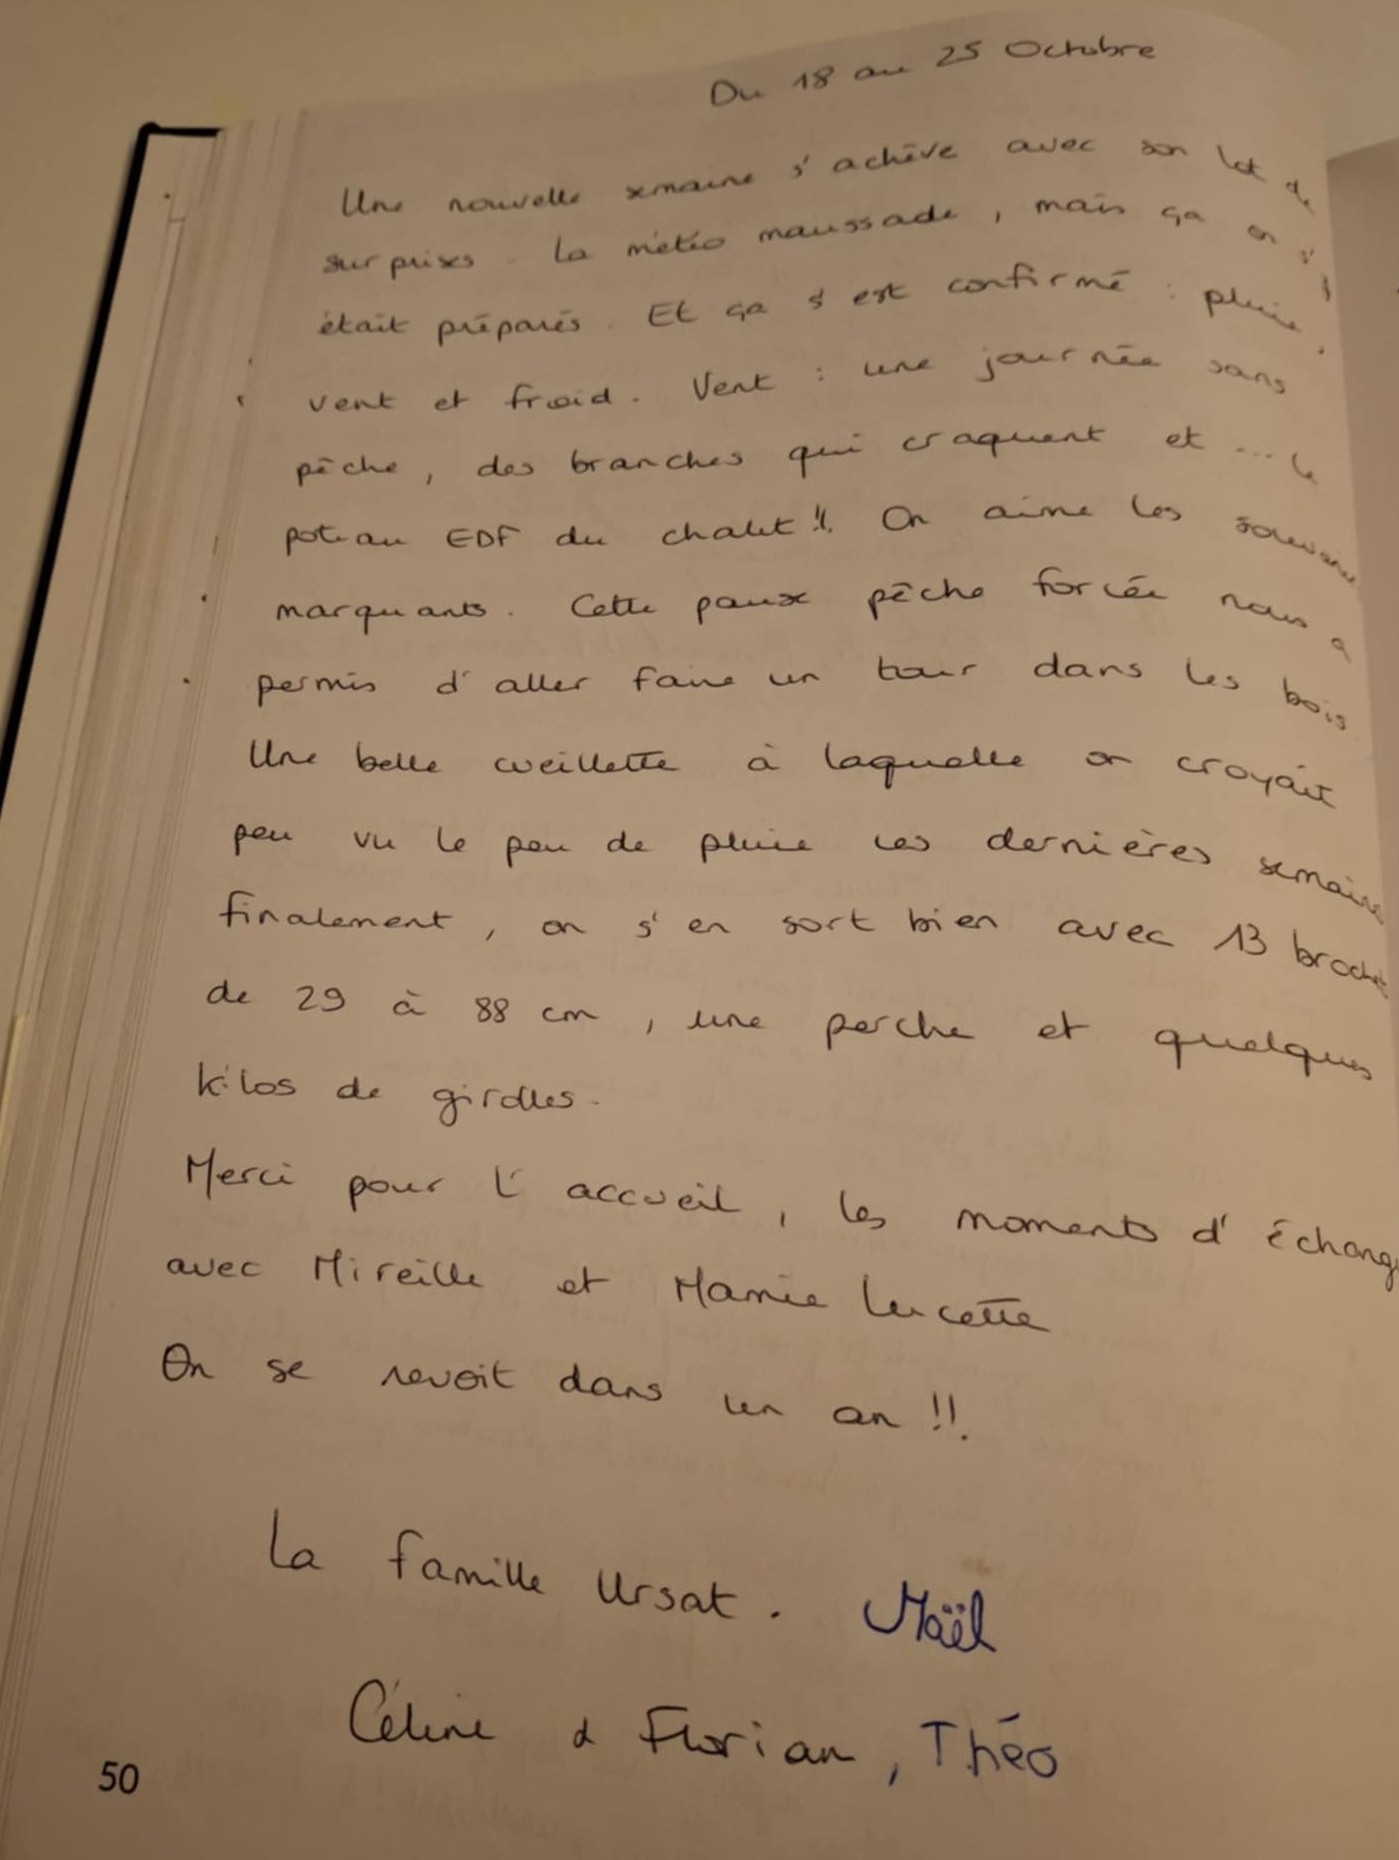 Du 18 au 25 Octobre
Une nouvelle semaine s'achève avec son lot de
surprises. La météo maussade, mais ça on s'y
était préparés. Et ça s'est confirmé : pluie,
vent et froid. Vent : une journée sans
pêche, des branches qui craquent et ... le
poteau EDF du chalet !!. On aime les souvenirs
marquants. Cette pause pêche forcée nous a
permis d'aller faire un tour dans les bois.
Une belle cueillette à laquelle on croyait
peu vu le peu de pluie ces dernières semaines
finalement, on s'en sort bien avec 13 brochets
de 29 à 88 cm, une perche et quelques
kilos de girolles.
Merci pour l'accueil, les moments d'échange
avec Mireille et Mamie Lucette
On se revoit dans un an !!.
La famille Ursat. Maël
Céline & Florian, Théo
50